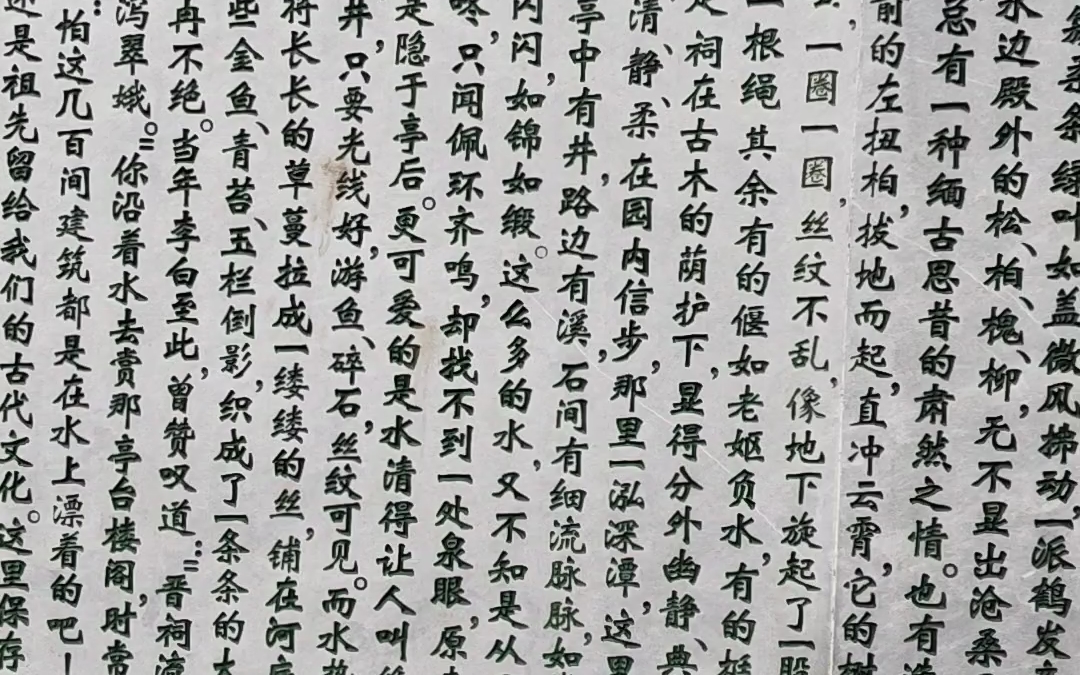 柔条绿叶如盖微风拂动，一派鹤发
水边殿外的松、柏、槐、柳，无不显出沧桑
总有一种缅古思昔的肃然之情。也有
前的左扭柏，拔地而起，直冲云霄，它的树
一圈一圈，丝纹不乱，像地下旋起了一股
一根绳其余有的偃如老妪负水，有的挺
祠在古木的荫护下，显得分外幽静、典
清、静、柔在园内信步，那里一泓深潭，这里
亭中有井，路边有溪，石间有细流脉脉，如
闪闪，如锦如缎。这么多的水，又不知是从
咚，只闻佩环齐鸣，却找不到一处泉眼，原
是隐于亭后。更可爱的是水清得让人叫
井，只要光线好，游鱼、碎石，丝纹可见。而水
将长长的草蔓拉成一缕缕的丝，铺在河
些金鱼、青苔、玉栏倒影，织成了一条条的大
冉不绝。当年李白至此，曾赞叹道：“晋祠流
泻翠娥。”你沿着水去赏那亭台楼阁，时常
怕这几百间建筑都是在水上漂着的吧！
是祖先留给我们的古代文化。这里保存